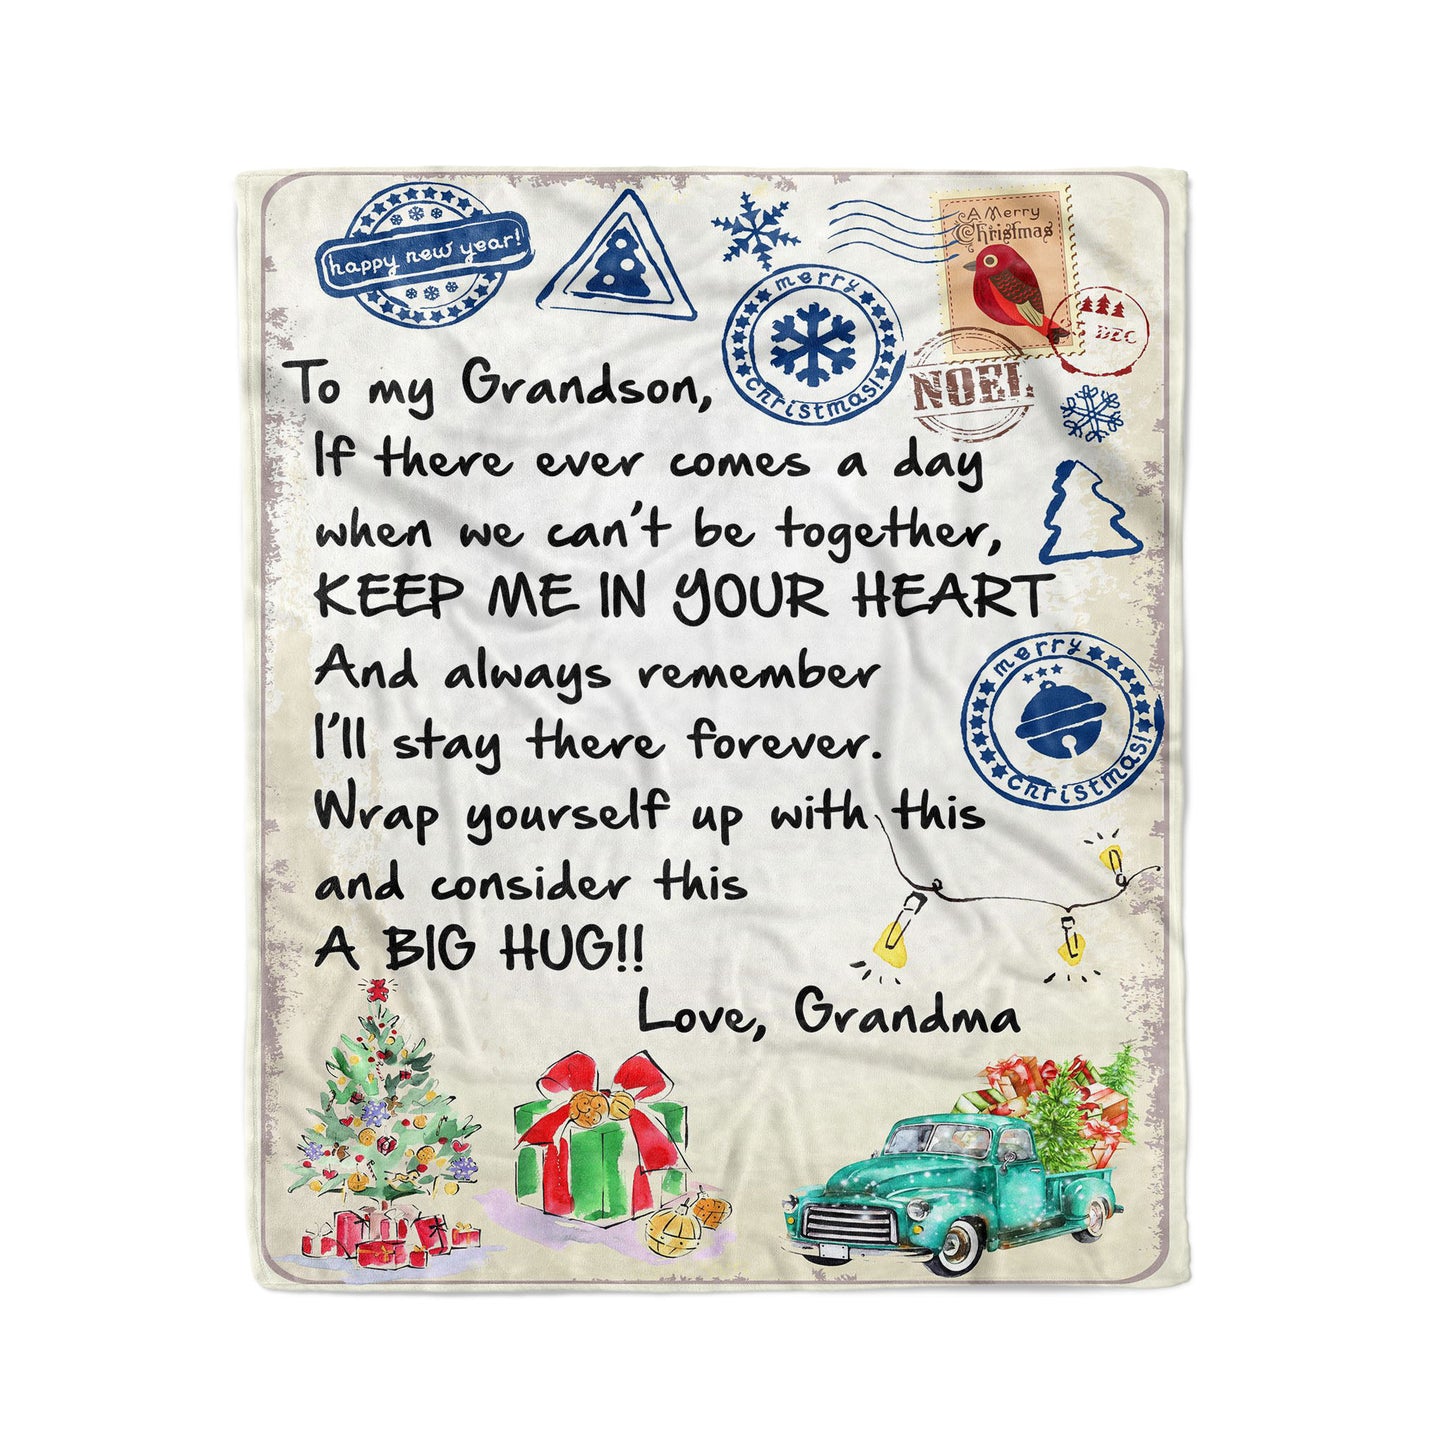 happy new year!
A Merry
Christmas
merry
christmas!
DEC
NOEL
To my Grandson,
If there ever comes a day
when we can't be together,
KEEP ME IN YOUR HEART
And always remember
I'll stay there forever.
Wrap yourself up with this
and consider this
A BIG HUG!!
Love, Grandma
merry
christmas!